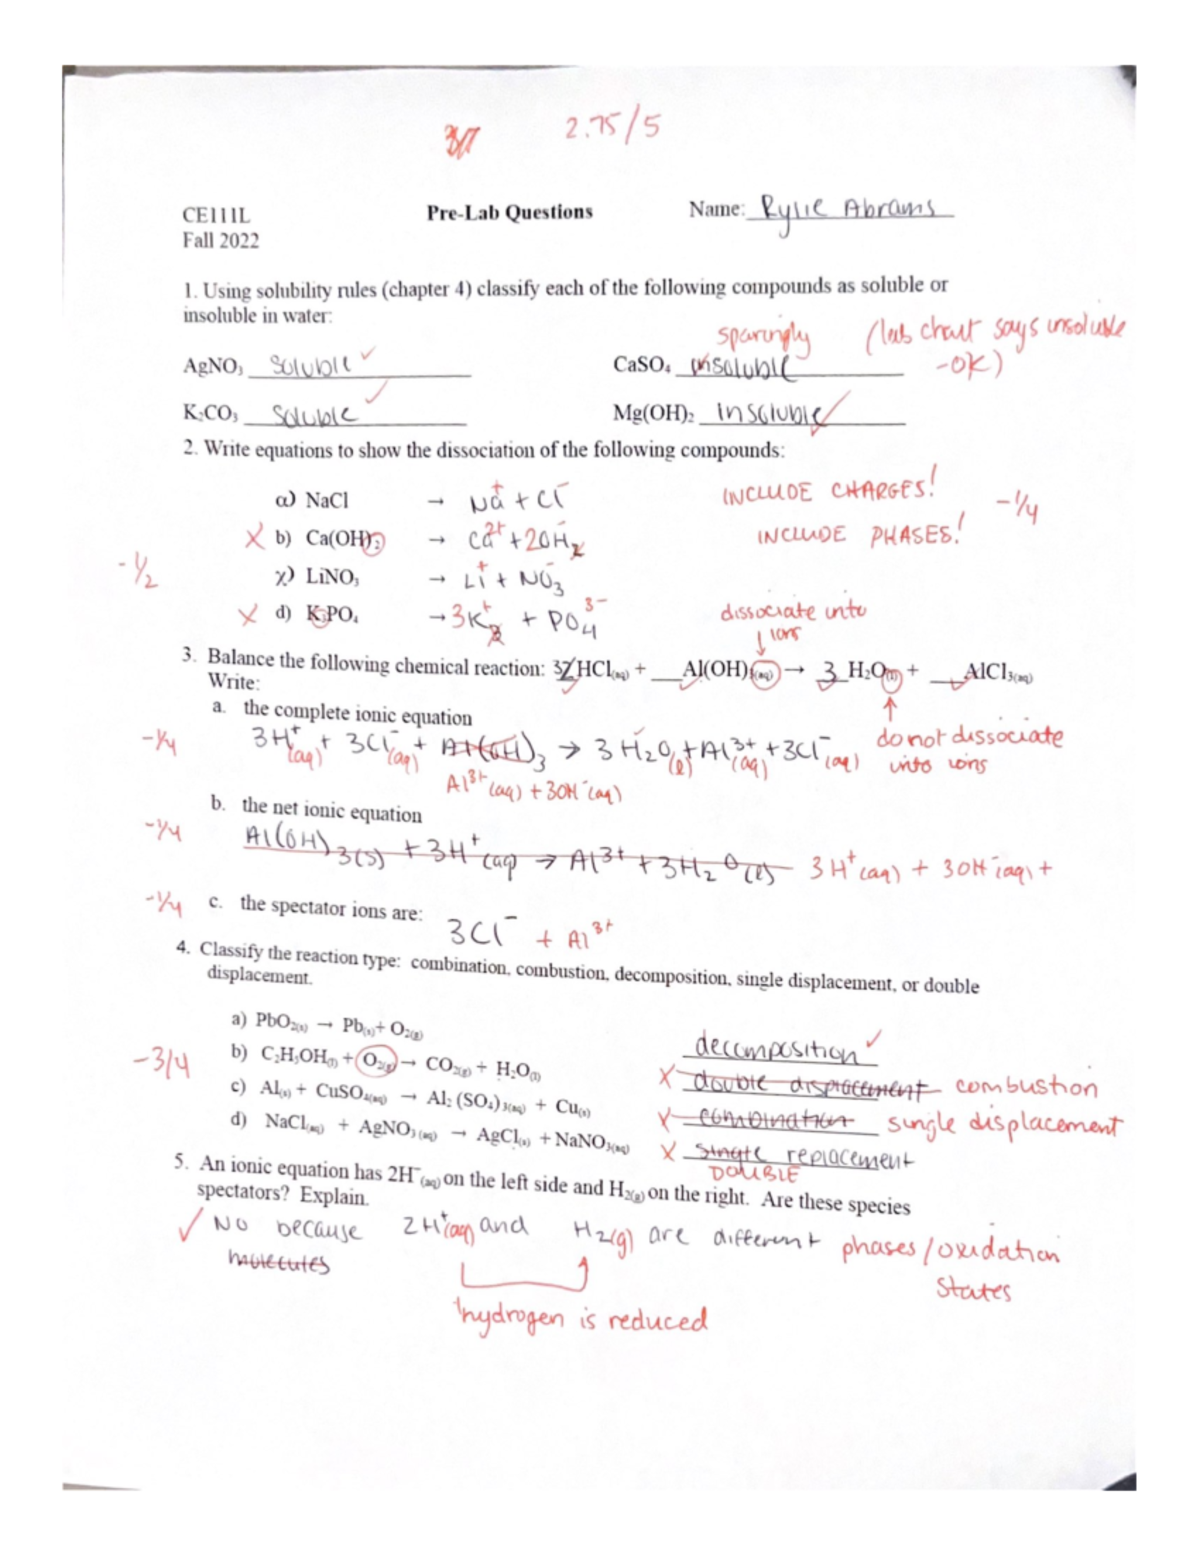 2.75/5
CE111L Pre-Lab Questions Name: Rylie Abrams
Fall 2022
1. Using solubility rules (chapter 4) classify each of the following compounds as soluble or
insoluble in water:
sparingly (lab chart says insoluble
AgNO₃ Soluble ✓ CaSO₄ insoluble -OK)
K₂CO₃ Soluble ✓ Mg(OH)₂ Insoluble ✓
2. Write equations to show the dissociation of the following compounds:
α) NaCl → Na⁺ + Cl⁻ INCLUDE CHARGES! -1/4
X b) Ca(OH)₂ → Ca²⁺ + 2OH⁻₂ INCLUDE PHASES!
-1/2
χ) LiNO₃ → Li⁺ + NO₃⁻
X d) K₃PO₄ → 3K⁺₃ + PO₄³⁻ dissociate into
ions
3. Balance the following chemical reaction: 3 HCl(aq) + ___Al(OH)₃(aq) → 3 H₂O(l) + ___AlCl₃(aq)
Write:
a. the complete ionic equation
-1/4 3H⁺(aq) + 3Cl⁻(aq) + Al(OH)₃ → 3 H₂O(l) + Al³⁺(aq) + 3Cl⁻(aq) do not dissociate
into ions
Al³⁺(aq) + 3OH⁻(aq)
b. the net ionic equation
-1/4 Al(OH)₃(s) + 3H⁺(aq) → Al³⁺ + 3H₂O(l) 3H⁺(aq) + 3OH⁻(aq) +
-1/4 c. the spectator ions are: 3Cl⁻ + Al³⁺
4. Classify the reaction type: combination, combustion, decomposition, single displacement, or double
displacement.
a) PbO₂(s) → Pb(s) + O₂(g) decomposition ✓
-3/4 b) C₂H₅OH(l) + O₂(g) → CO₂(g) + H₂O(l) X double displacement combustion
c) Al(s) + CuSO₄(aq) → Al₂(SO₄)₃(aq) + Cu(s) X combination single displacement
d) NaCl(aq) + AgNO₃(aq) → AgCl(s) + NaNO₃(aq) X single replacement
DOUBLE
5. An ionic equation has 2H⁻(aq) on the left side and H₂(g) on the right. Are these species
spectators? Explain.
✓ No because 2H⁺(aq) and H₂(g) are different phases/oxidation
molecules states
hydrogen is reduced